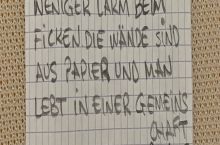 WENIGER LÄRM BEIM
FICKEN. DIE WÄNDE SIND
AUS PAPIER UND MAN
LEBT IN EINER GEMEINS
CHAFT